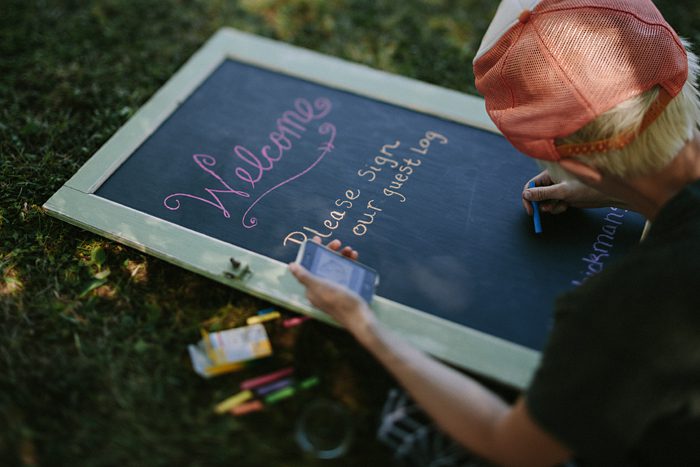 Welcome
Please Sign
our guest log